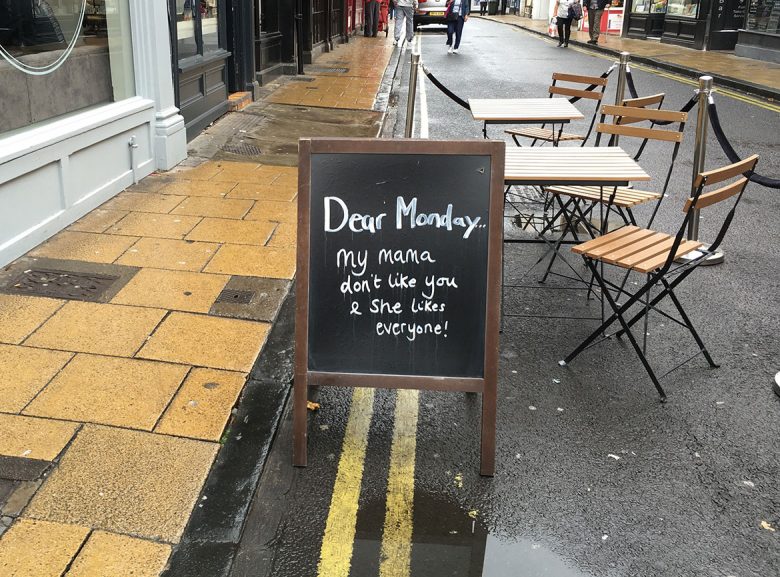 Dear Monday..
My mama
don't like you
& she likes
everyone!